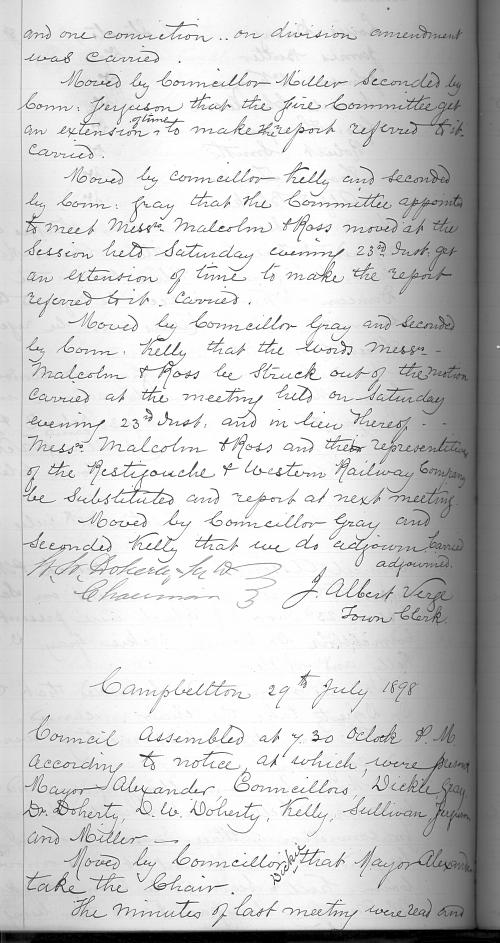 and one conviction .. on division amendment
was carried.
Moved by Councillor Miller Seconded by
Coun: Ferguson that the fire Committee get
an extension of time to make the report referred to it.
carried.
Moved by councillor Kelly and seconded
by Coun: Gray that the Committee appointed
to meet Messrs Malcolm & Ross moved at the
Session held Saturday evening 23rd Inst. get
an extension of time to make the report
referred to it. Carried.
Moved by Councillor Gray and Seconded
by Coun: Kelly that the words Messrs -
Malcolm & Ross be Struck out of the motion
carried at the meeting held on Saturday
evening 23rd Inst. and in lieu thereof - -
Messrs Malcolm & Ross and their representitives
of the Restigouche & Western Railway Company
be Substituted and report at next meeting.
Moved by Councillor Gray and
Seconded Kelly that we do adjourn Carried
adjourned.
Doherty
Chairman
J. Albert Verge
Town Clerk.
Campbellton 29th July 1898
Council Assembled at 7.30 Oclock P.M.
according to notice, at which were present
Mayor Alexander, Councillors, Dickie, Gray,
Dr. Doherty, D.W. Doherty, Kelly, Sullivan, Ferguson
and Miller —
Moved by Councillor Dickie that Mayor Alexander
take the Chair.
The minutes of last meeting were read and